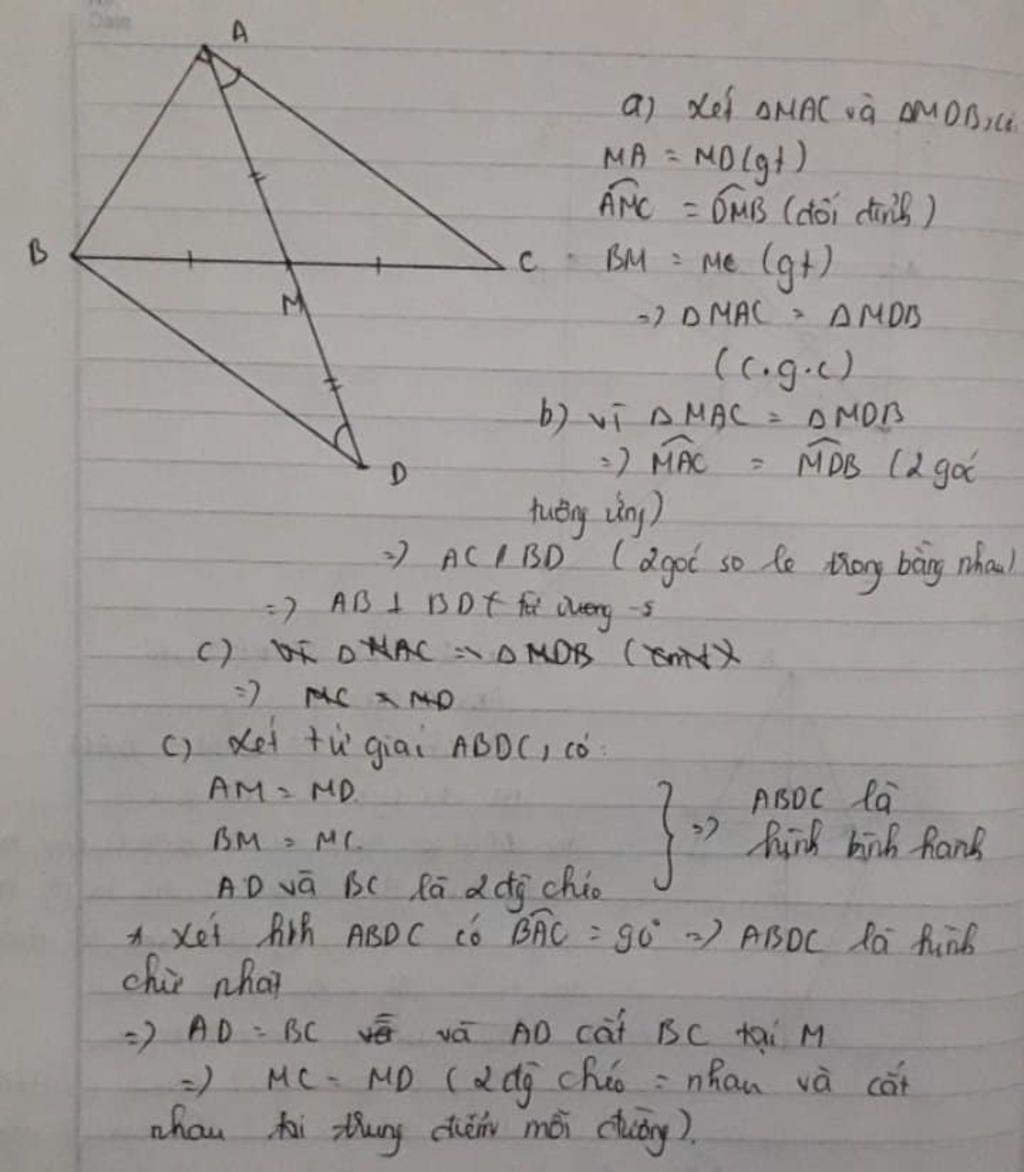 Date
A
B
C
M
D
a) xét ΔMAC và ΔMDB, có
MA = MD (gt)
AMC = DMB (đối đỉnh)
BM = MC (gt)
=> ΔMAC = ΔMDB
(c.g.c)
b) vì ΔMAC = ΔMDB
=> MAC = MDB (2 góc
tương ứng)
=> AC // BD (2 góc so le trong bằng nhau)
=> AB ⊥ BD
c) vì ΔMAC = ΔMDB
=> MC = MD
c) xét tứ giác ABDC, có:
AM = MD
BM = MC
AD và BC là 2 đg chéo
} => ABDC là
hình bình hành
* xét hbh ABDC có BAC = 90° => ABDC là hình
chữ nhật
=> AD = BC và AD cắt BC tại M
=> MC = MD (2 đg chéo = nhau và cắt
nhau tại trung điểm mỗi đường).